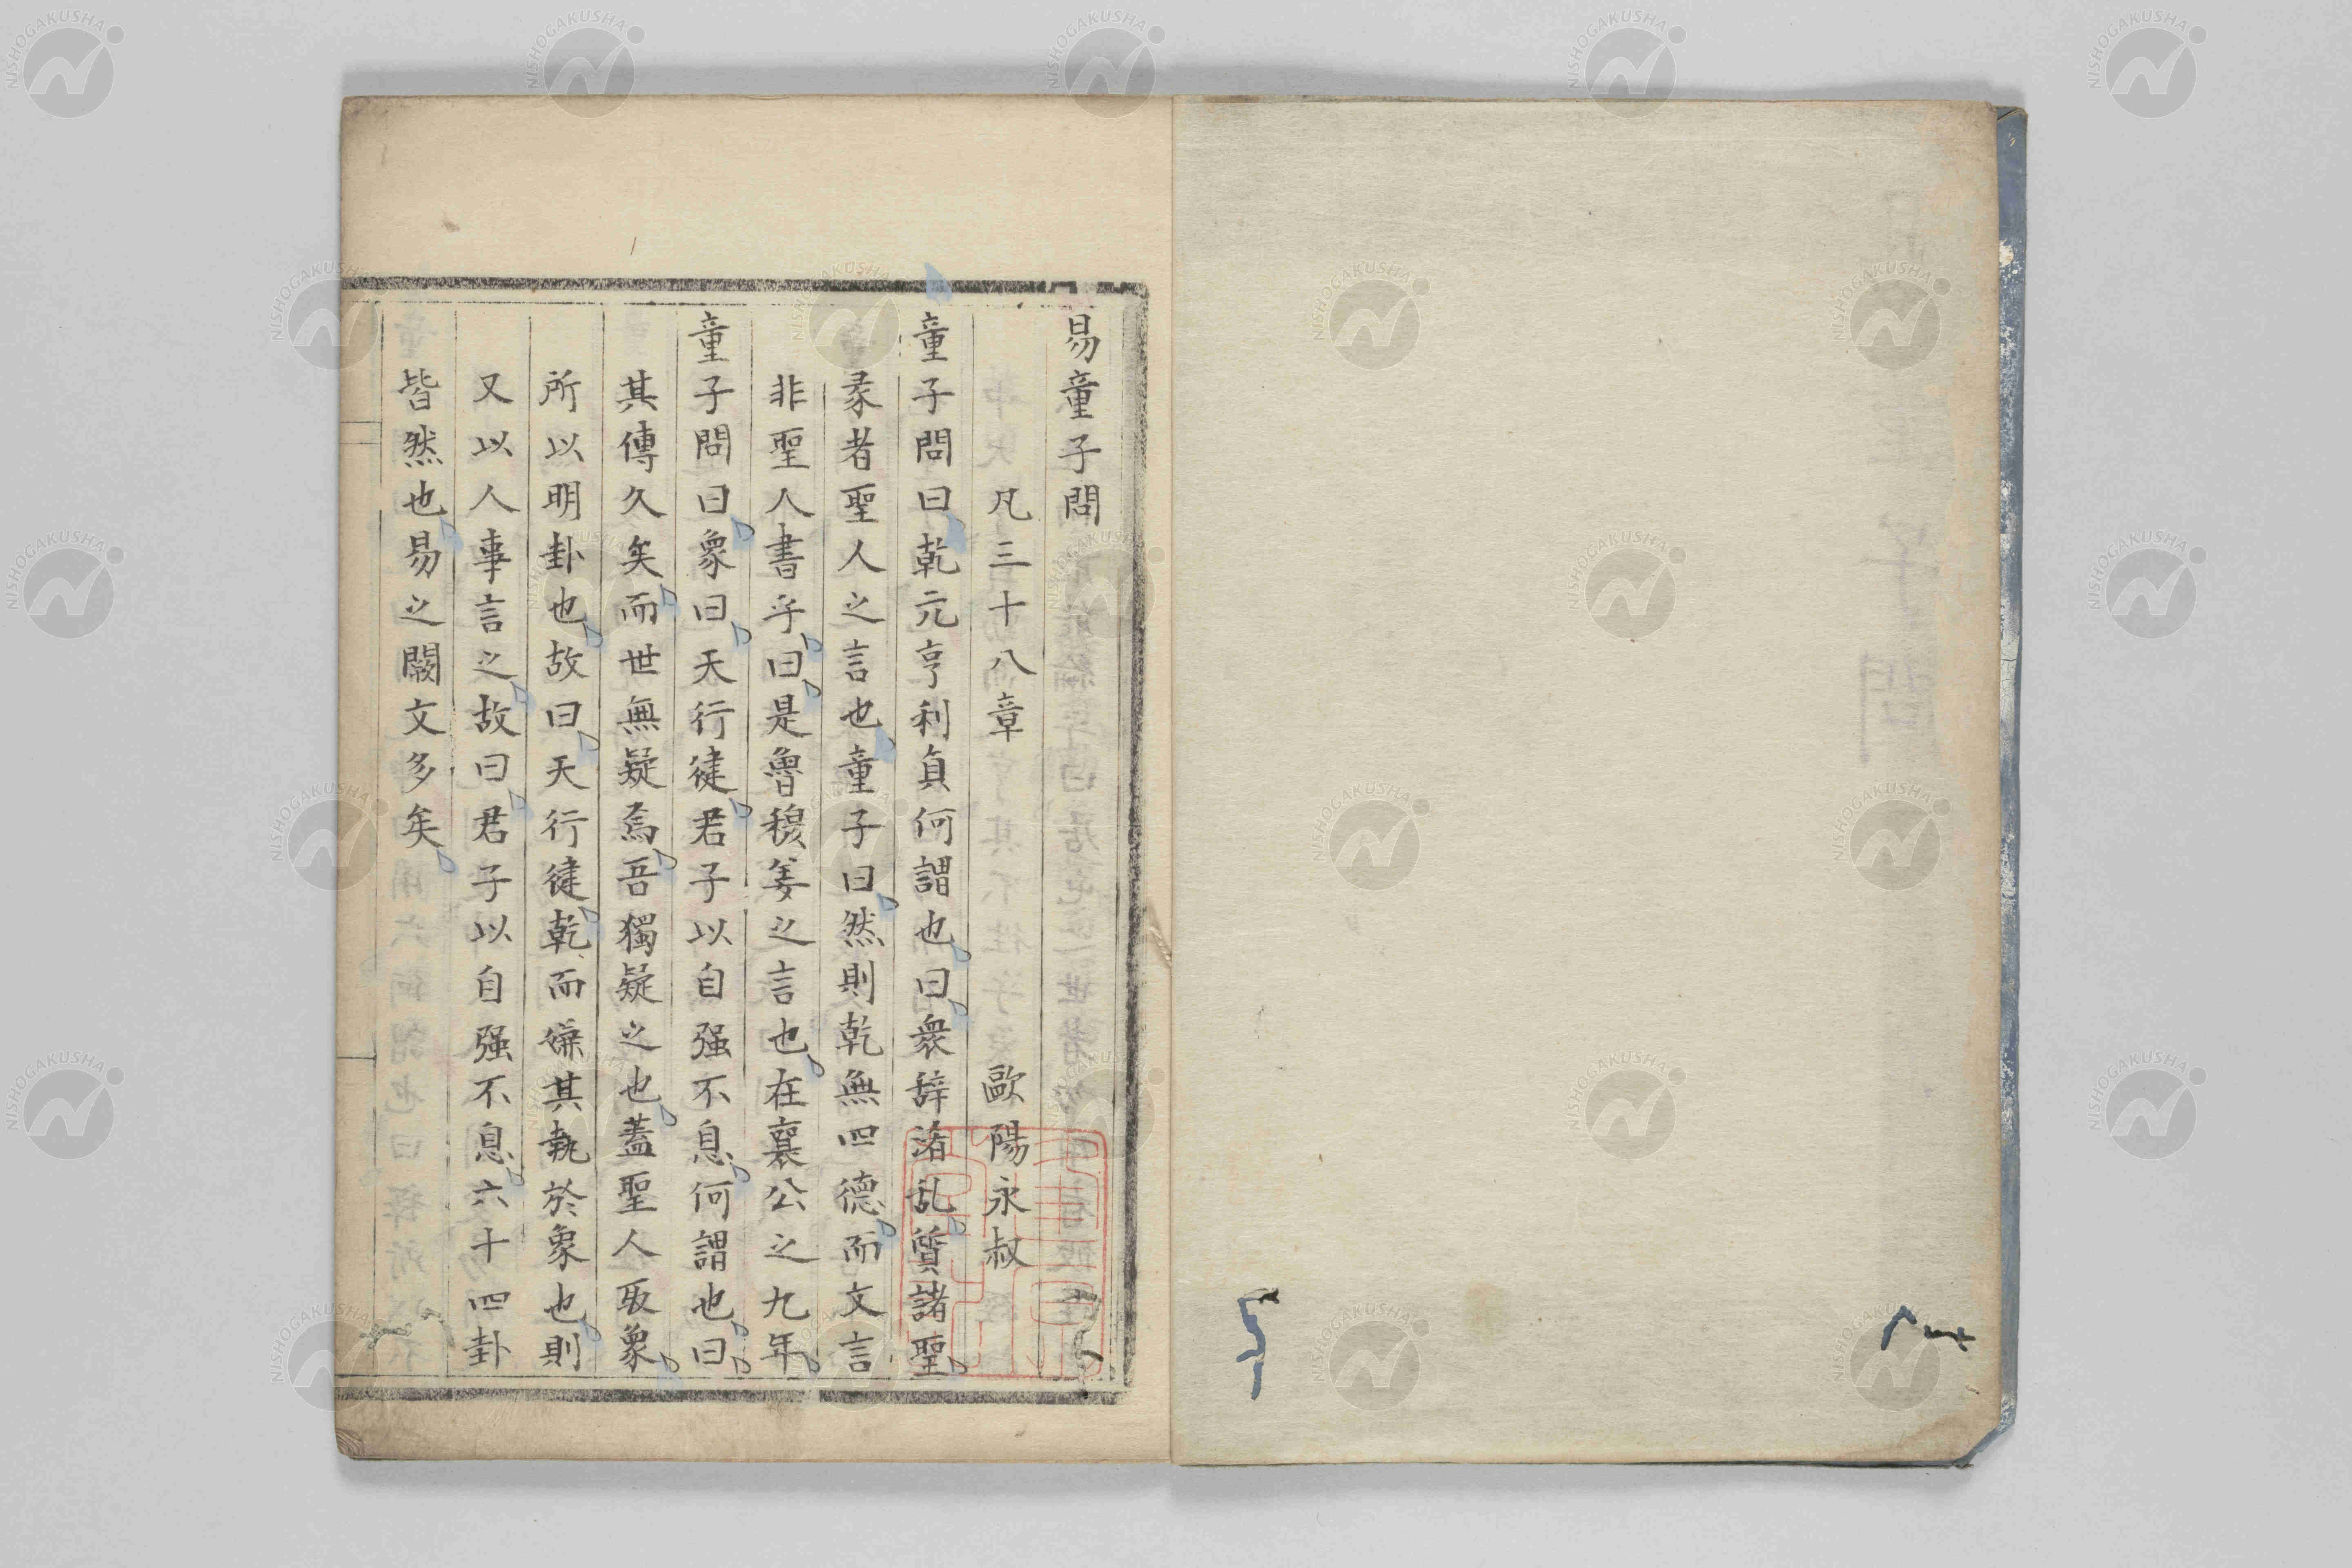 易童子問
凡三十八章 歐陽永叔
童子問曰乾元亨利貞何謂也曰衆辞淆乱質諸聖
彖者聖人之言也童子曰然則乾無四德而文言
非聖人書乎曰是魯穆姜之言也在襄公之九年
童子問曰象曰天行健君子以自强不息何謂也曰
其傳久矣而世無疑焉吾獨疑之也蓋聖人取象
所以明卦也故曰天行健乾而嫌其執於象也則
又以人事言之故曰君子以自强不息六十四卦
皆然也易之闕文多矣
NISHOGAKUSHA